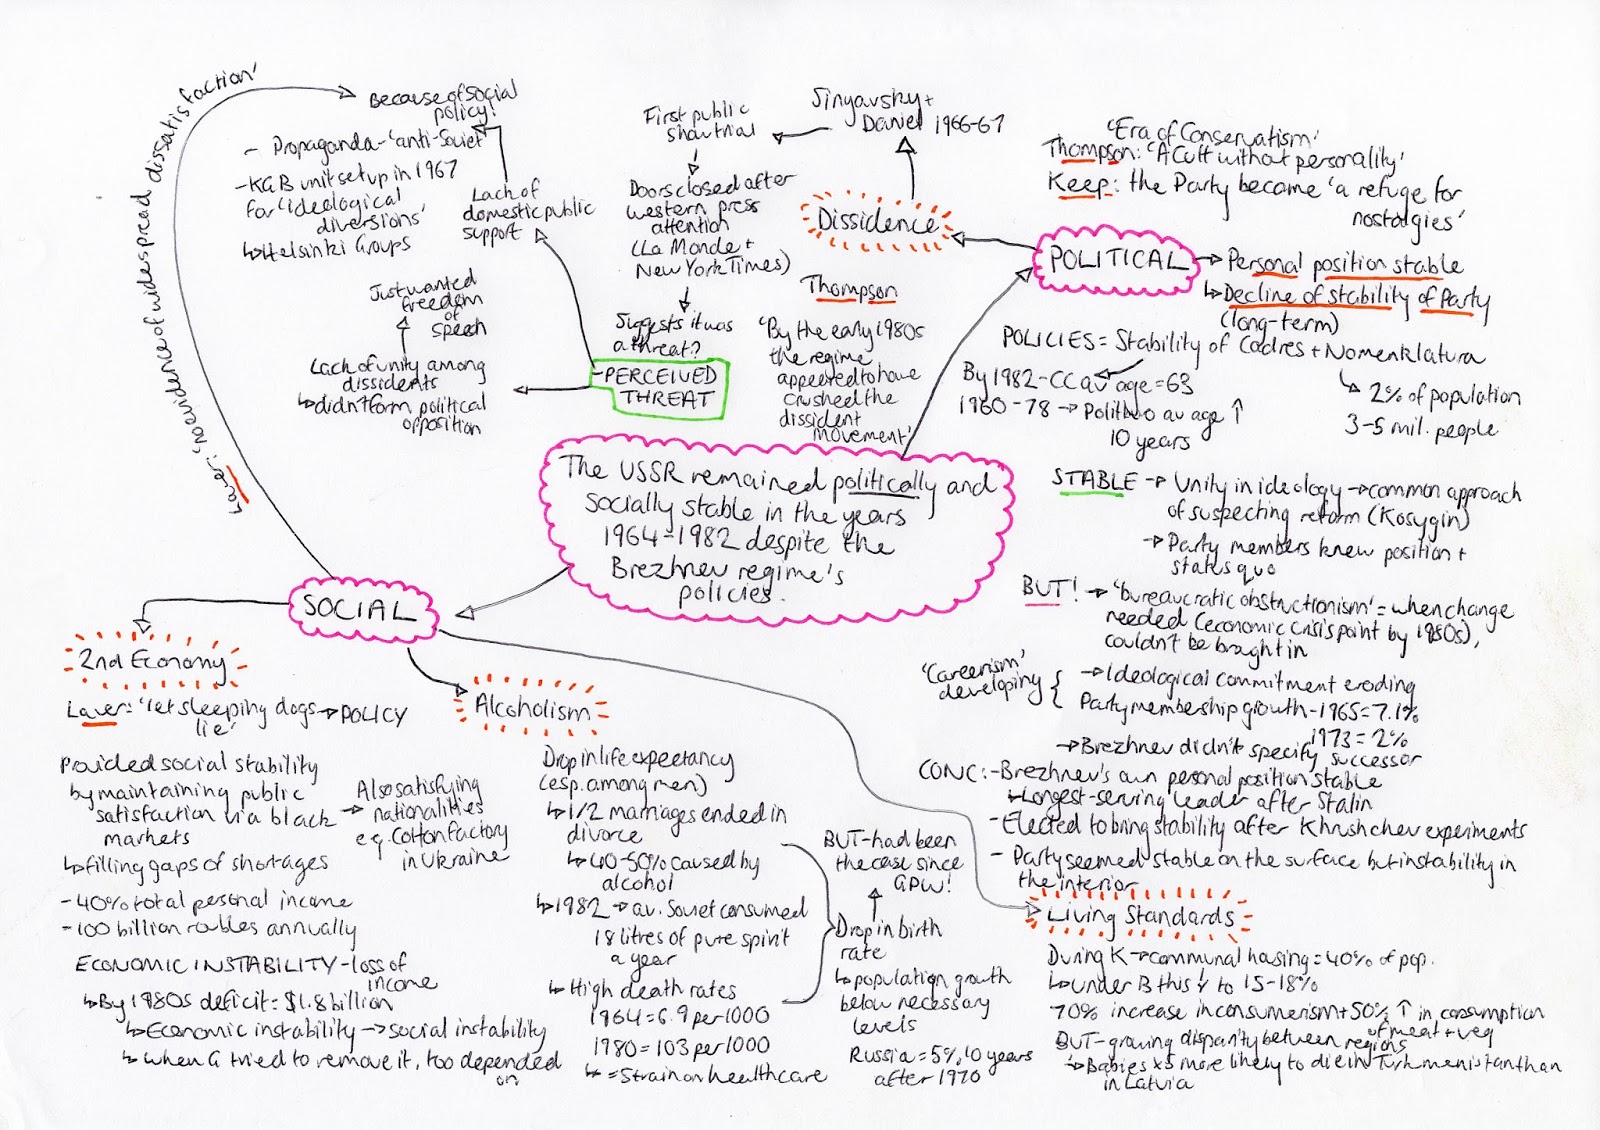 The USSR remained politically and
socially stable in the years
1964-1982 despite the
Brezhnev regime's
policies.
POLITICAL
'Era of Conservatism'
Thompson: 'A Cult without personality'
Keep: the Party became 'a refuge for
nostalgies'
Personal position stable
Decline of stability of Party
(long-term)
POLICIES = Stability of Cadres + Nomenklatura
By 1982 - CC av age = 63
1960-78 → Politburo av age ↑
10 years
2% of population
3-5 mil. people
STABLE → Unity in ideology → common approach
of suspecting reform (Kosygin)
→ Party members knew position +
status quo
BUT! → 'bureaucratic obstructionism' = when change
needed (economic crisis point by 1980s),
couldn't be braght in
'Careerism'
developing
→ Ideological commitment eroding
Party membership growth - 1965 = 7.1%
1973 = 2%
→ Brezhnev didn't specify successor
CONC: - Brezhnev's own personal position stable
↳ Longest-serving leader after Stalin
- Elected to bring stability after Khrushchev experiments
- Party seemed stable on the surface but instability in
the interior
Dissidence
Sinyavsky +
Daniel 1966-67
First public
show trial
Doors closed after
western press
attention
(La Monde +
New York Times)
Suggests it was
a threat?
- PERCEIVED
THREAT
Thompson
'By the early 1980s
the regime
appeared to have
crushed the
dissident
movement'
Lack of
domestic public
support
Because of social
policy!
- Propaganda - 'anti-Soviet'
- KGB unit set up in 1967
for 'ideological
diversions'
↳ Helsinki Groups
Just wanted
freedom
of
speech
Lack of unity among
dissidents
↳ didn't form political
opposition
SOCIAL
Laver: 'no evidence of widespread dissatisfaction'
2nd Economy
Laver: 'let sleeping dogs → POLICY
lie'
Provided social stability
by maintaining public
satisfaction via black
markets
→ Also satisfying
nationalities
e.g. Cotton factory
in Ukraine
↳ filling gaps of shortages
- 40% total personal income
- 100 billion roubles annually
ECONOMIC INSTABILITY - loss of
income
↳ By 1980s deficit = $1.8 billion
↳ Economic instability → social instability
↳ when G tried to remove it, too depended
on
Alcoholism
Drop in life expectancy
(esp. among men)
↳ 1/2 marriages ended in
divorce
↳ 40-50% caused by
alcohol
↳ 1982 → av. Soviet consumed
18 litres of pure spirit
a year
↳ High death rates
1964 = 6.9 per 1000
1980 = 103 per 1000
↳ = Strain on healthcare
BUT - had been
the case since
GPW!
Drop in birth
rate
↳ population growth
below necessary
levels
Russia = 5%, 10 years
after 1970
Living Standards
During K → communal housing = 40% of pop.
↳ Under B this ↓ to 15-18%
70% increase in consumerism + 50% ↑ in consumption
of meat + veg
BUT - growing disparity between regions
→ Babies x5 more likely to die in Turkmenistan than
in Latvia